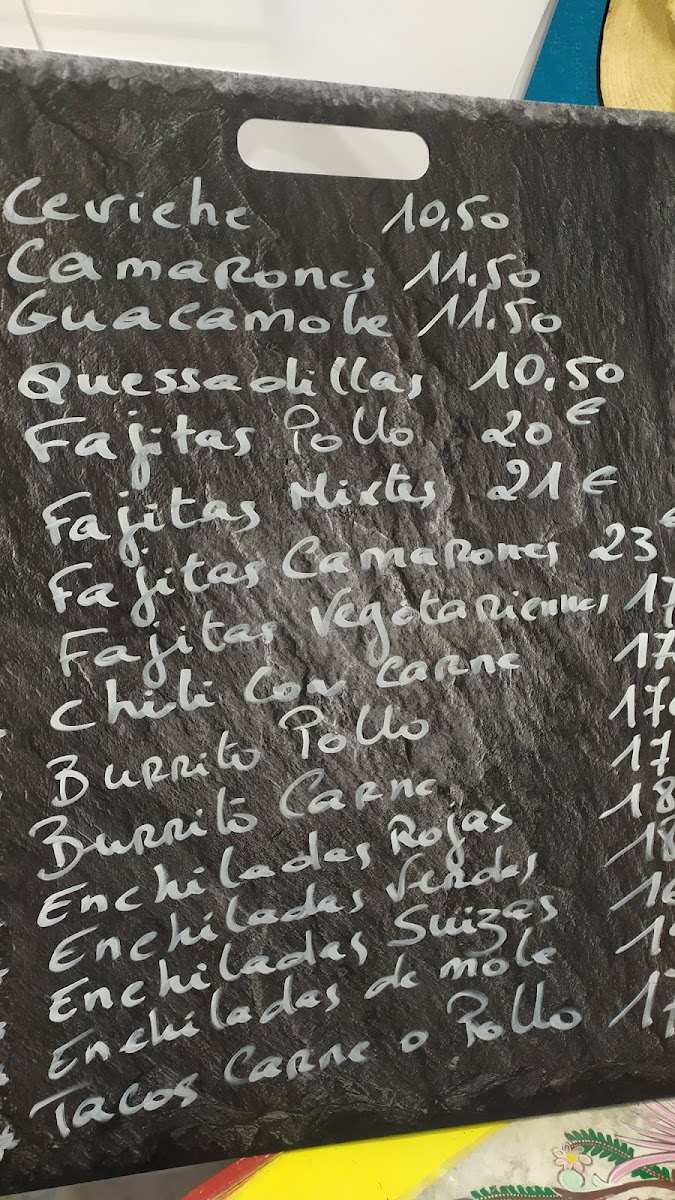 Ceviche 10,50
Camarones 11.50
Guacamole 11.50
Quessadillas 10.50
Fajitas Pollo 20€
Fajitas Mixtes 21€
Fajitas Camarones 23€
Fajitas Vegetariennes 17
Chili Con Carne 17
Burrito Pollo 17
Burrito Carne 17
Enchiladas Rojas 18
Enchiladas Verdes 18
Enchiladas Suizas
Enchiladas de mole
Tacos Carne o Pollo 17